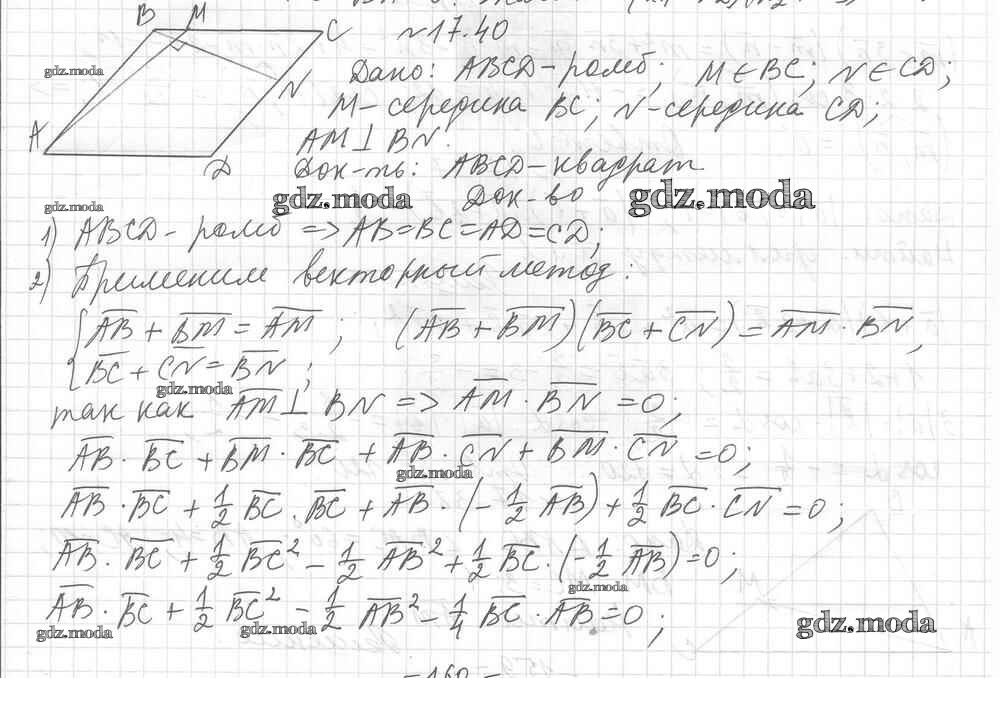 B M C
N
A
D
№17.40
Дано: ABCD – ромб; M ∈ BC; N ∈ CD;
M – середина BC; N – середина CD;
AM ⊥ BN.
Док-ть: ABCD – квадрат
Док-во
1) ABCD – ромб => AB = BC = AD = CD;
2) Применим векторный метод:
{ \overline{AB} + \overline{BM} = \overline{AM} ; (\overline{AB} + \overline{BM})(\overline{BC} + \overline{CN}) = \overline{AM} · \overline{BN},
\overline{BC} + \overline{CN} = \overline{BN} ;
так как \overline{AM} ⊥ BN => \overline{AM} · \overline{BN} = 0;
\overline{AB} · \overline{BC} + \overline{BM} · \overline{BC} + \overline{AB} · \overline{CN} + \overline{BM} · \overline{CN} = 0;
\overline{AB} · \overline{BC} + 1/2 \overline{BC} · \overline{BC} + \overline{AB} · (- 1/2 \overline{AB}) + 1/2 \overline{BC} · \overline{CN} = 0;
\overline{AB} · \overline{BC} + 1/2 \overline{BC}² - 1/2 \overline{AB}² + 1/2 \overline{BC} · (- 1/2 \overline{AB}) = 0;
\overline{AB} · \overline{BC} + 1/2 \overline{BC}² - 1/2 \overline{AB}² - 1/4 \overline{BC} · \overline{AB} = 0;
gdz.moda
gdz.moda
gdz.moda
gdz.moda
gdz.moda
gdz.moda
gdz.moda
gdz.moda
gdz.moda
gdz.moda
- 160 -